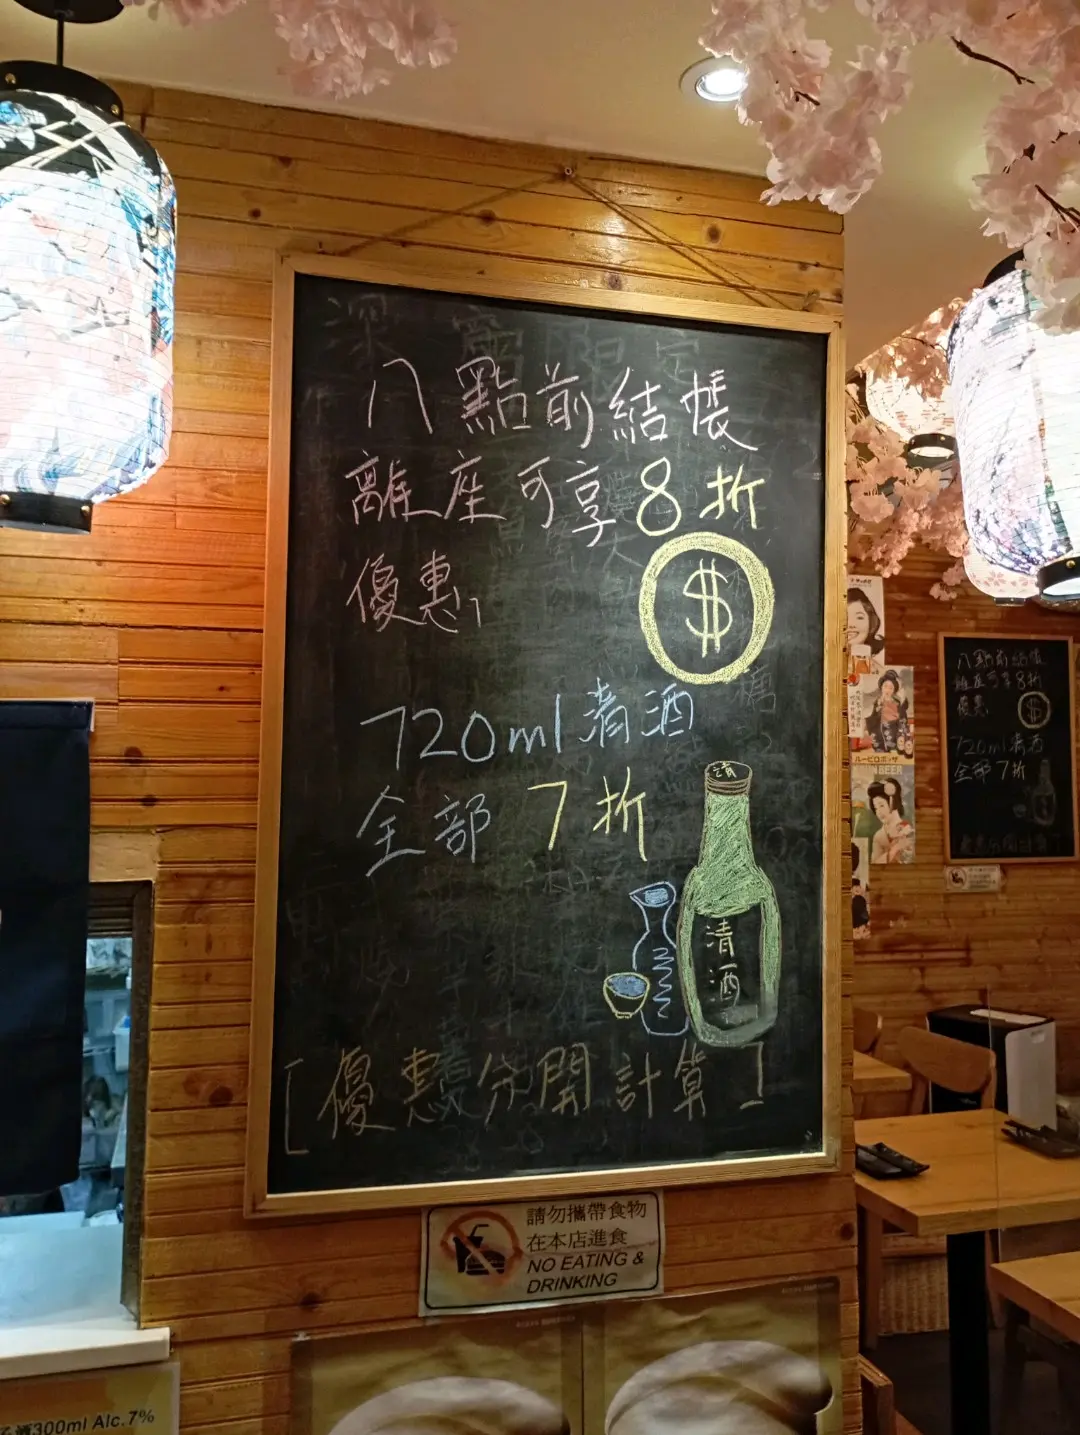 八點前結帳
離座可享8折
優惠
$
720ml清酒
全部7折
清
清酒
[優惠分開計算]
請勿攜帶食物
在本店進食
NO EATING &
DRINKING
酒300ml Alc.7%
八點前結帳
離座可享8折
優惠
$
720ml清酒
全部7折